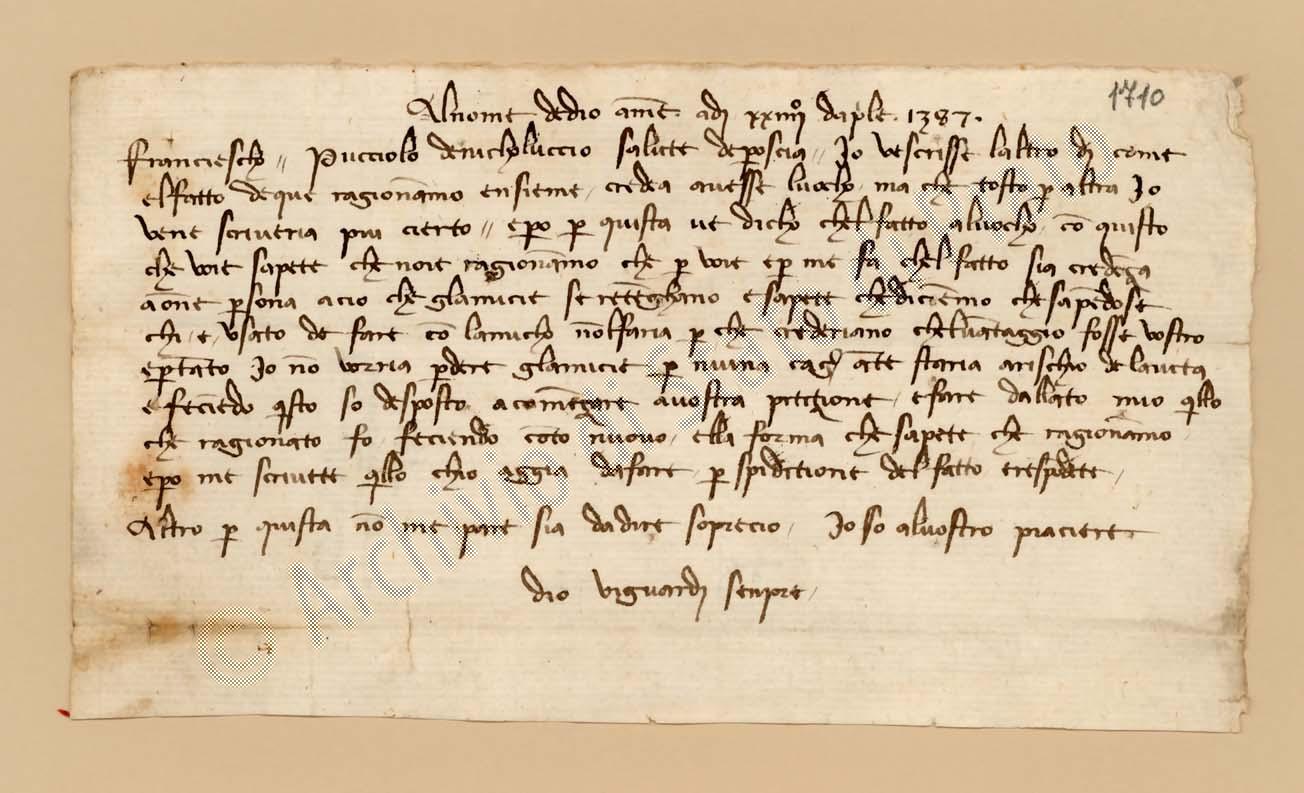 1710
Al nome dedio ame adi xxiiii° daple. 1387.
Franciescho // Pucciolo denicholuccio salute deperoscia // Jo vescrisse laltro di come
elfatto deque ragionamo ensieme, credea avesse luocho, ma che tosto p altra Jo
vene scriveria piu cierto // epo p quista ve dicho chel fatto aluocho, co quisto
che voie sapete che noie ragionamo che p voie ep me fa chel fatto sia credeça
aone psona acio che glamicie se reteghano e sapete che diciemo che sapedose
chi, e, usato de fare co lamicho nolfaria p che crederiano cheluataggio fosse vostro
eptato Jo no vorria pdere glamicie p niuna cag ate staria arischio de
e feciedo qsto so desposto acomeçare avostra petiçione, e fare dallato mio qllo
che ragionato fo, feciendo coto nuovo, ella forma che sapete che ragionamo
epo me scrivete qllo chio aggia dafare, p spiditione del fatto erespodete,
Altro p quista no me pare sia dadire soprecio, Jo so alvostro piaciere
dio viguardi senpre,
© Archivio di Stato di Prato